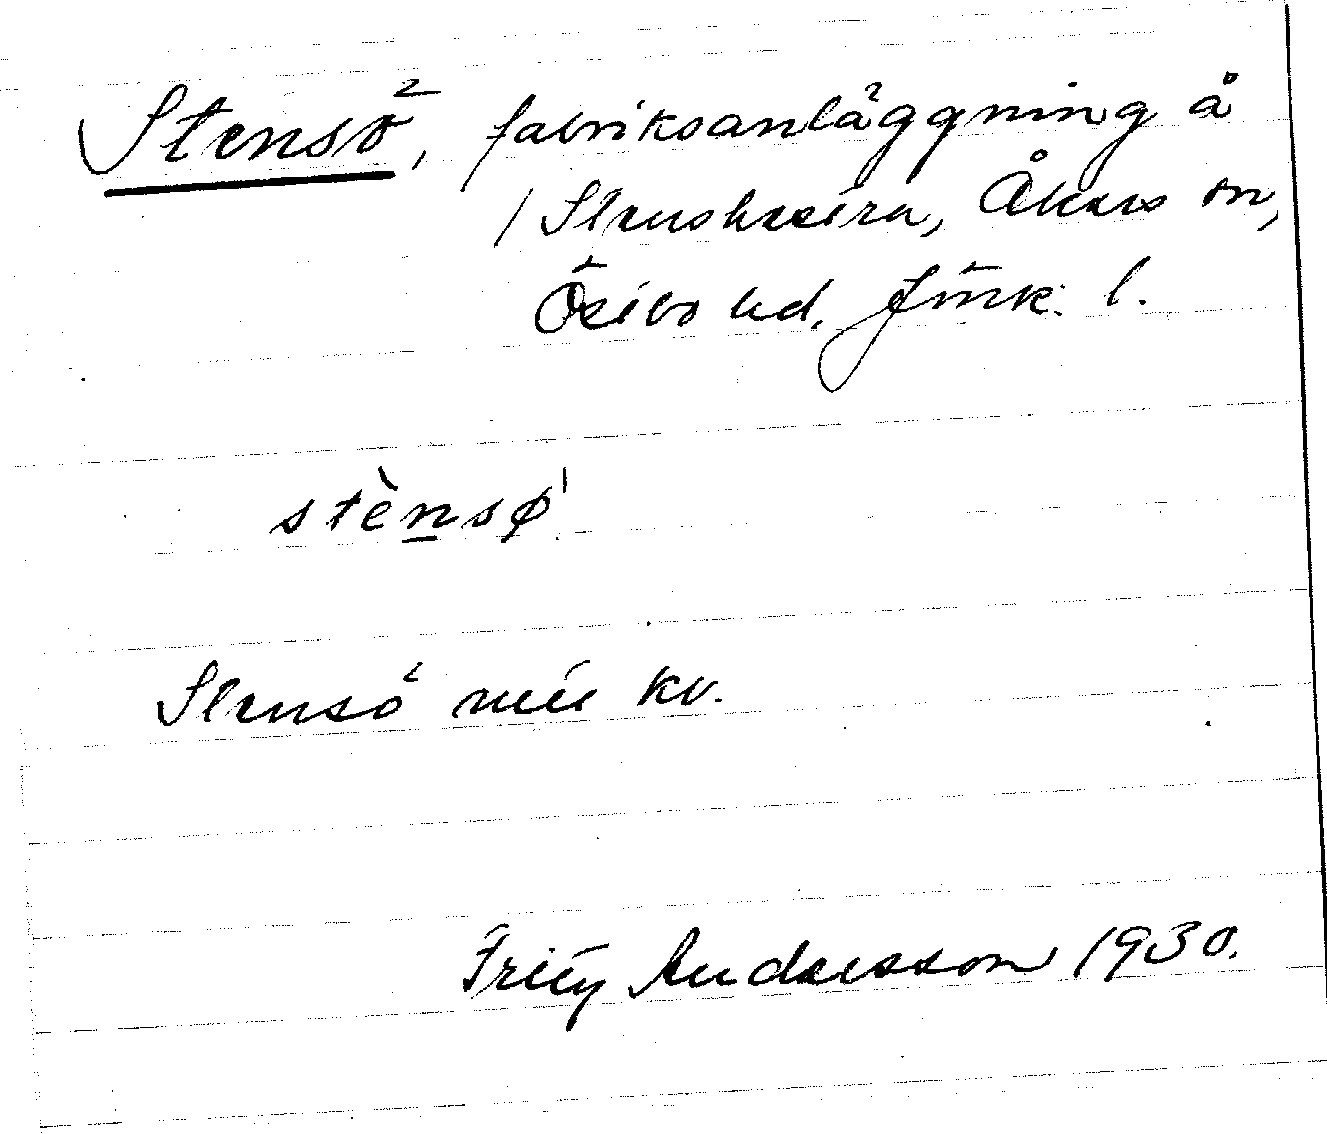 Stensö, fabriksanläggning å
/ Stenshvarn, Åkers sn,
Östbo hd. Jönk. l.
stènsø'
Stensö nuv kv.
Fritz Andersson 1930.